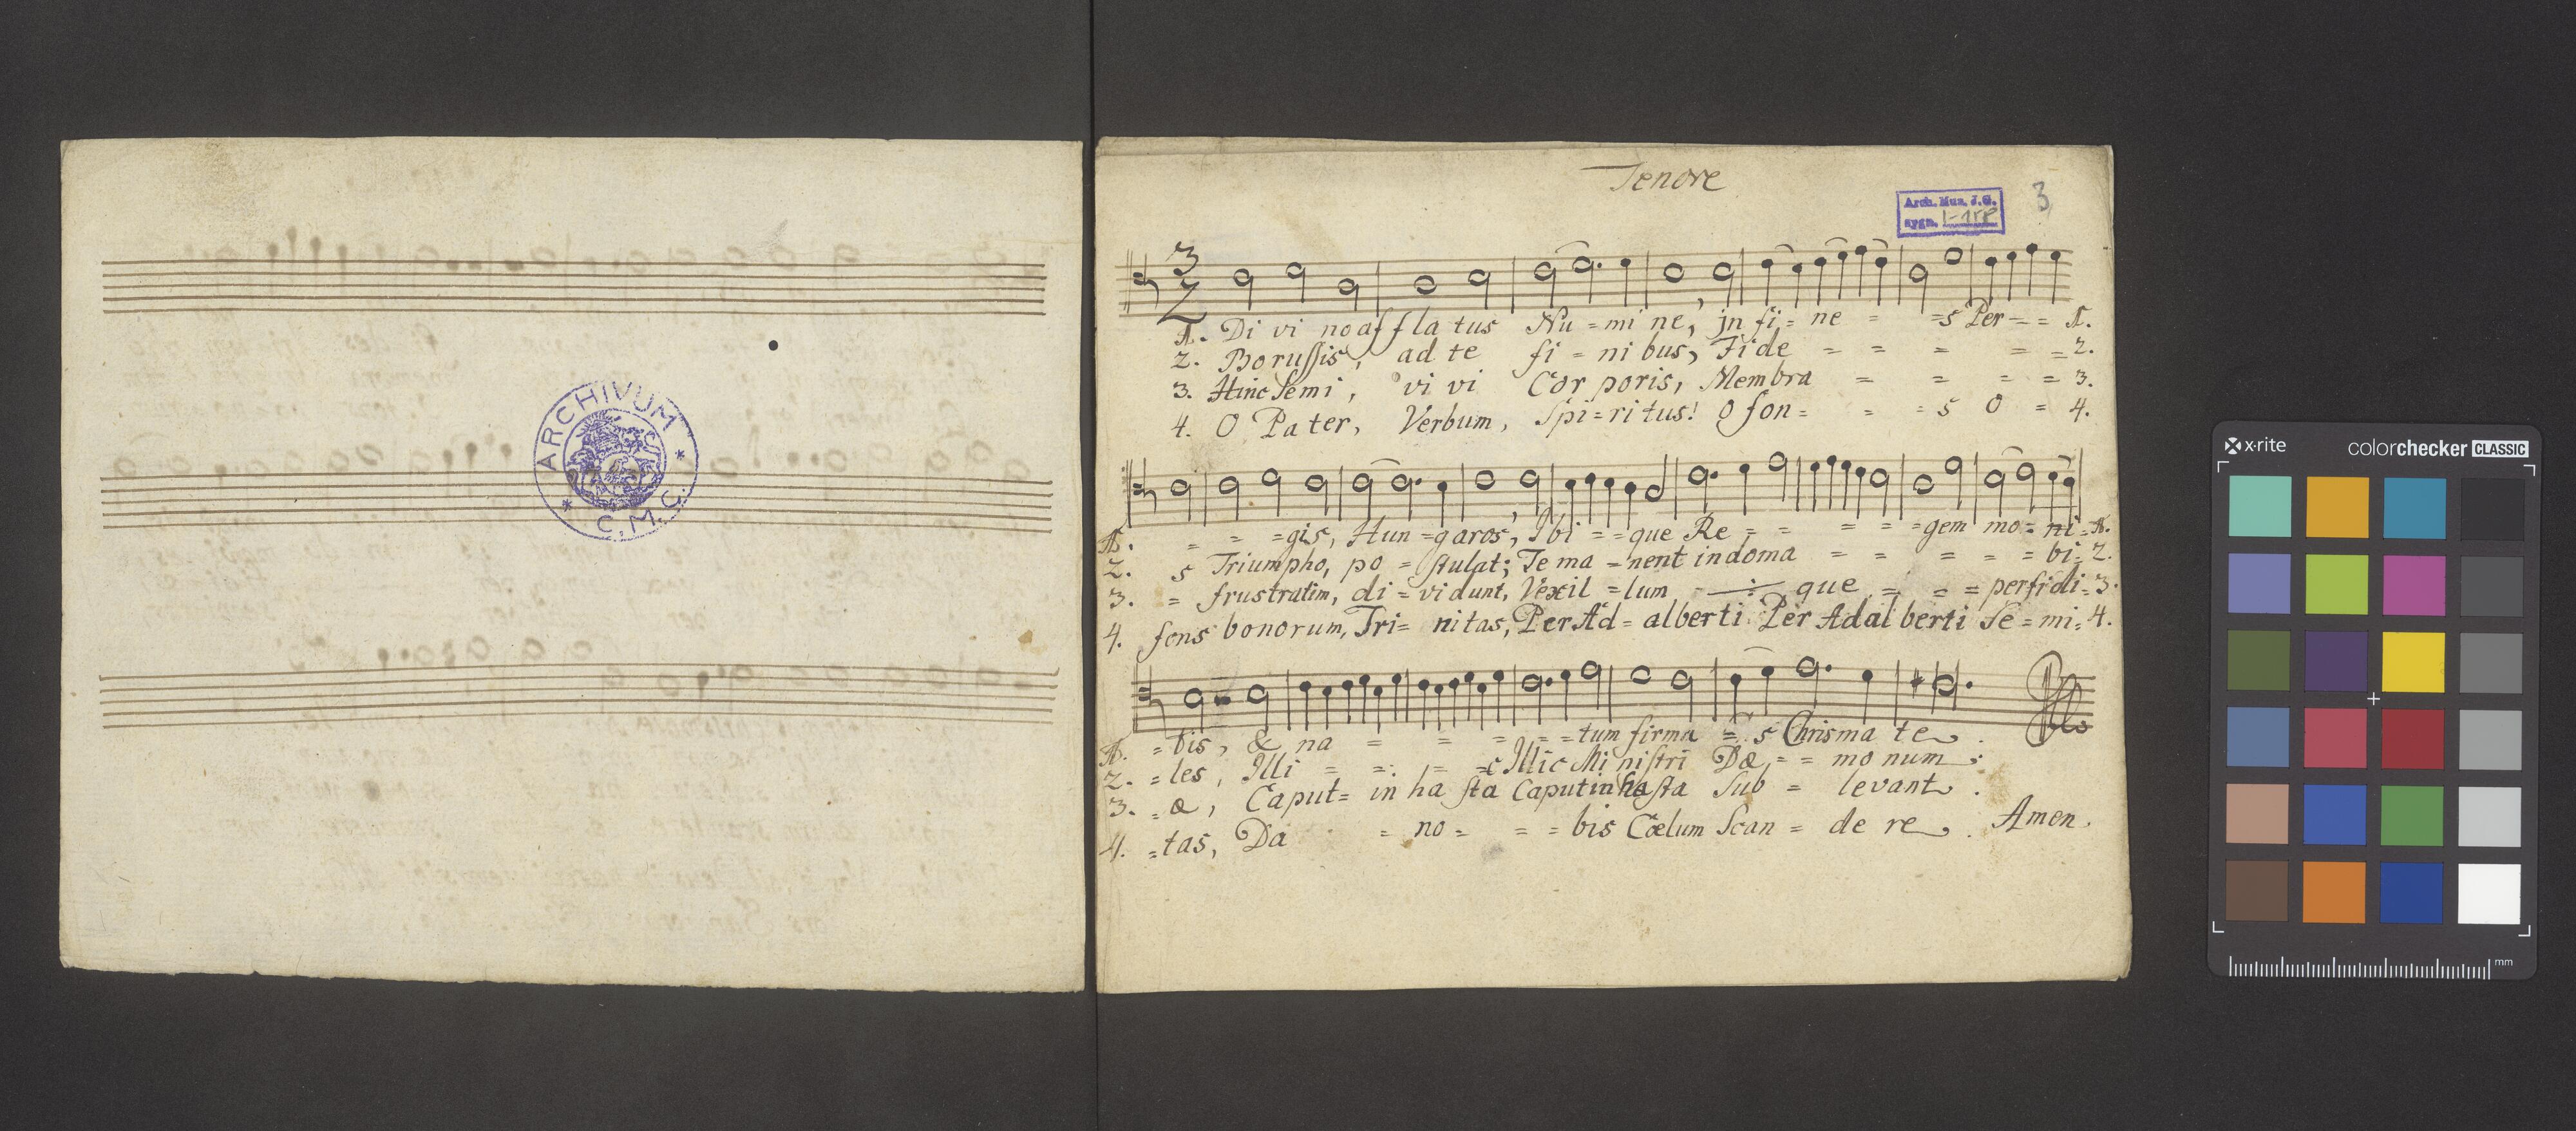 ARCHIVUM
C.M.C.
Tenore
Arch. Muz. J.G.
sygn.
3
3
2
1. Di vi no af fla tus Nu = mi ne, jn fi = ne = = s Per = = 1.
2. Borussis, ad te fi = ni bus, Fide = = = = = 2.
3. Hinc Semi, vi vi Cor poris, Membra = = = = 3.
4. O Pa ter, Verbum, Spi = ri tus! O fon = = = s O = 4.
1. = = = gis, Hun = garos, Ibi = = que Re = = = = = gem mo = ni = 1.
2. s Triumpho, po = stulat; Te ma = nent indoma = = = = = bi = 2.
3. = frustratim, di = vidunt, Vexil = lum que = = = perfidi = 3.
4. fons bonorum, Tri = nitas, Per Ad = alberti Per Adal berti Se = mi = 4.
1. = bis, & na = = = = = tum firma = s Chrisma te .
2. = les, Illi = = = = c Illic Mi nistri Dæ = = mo num ;
3. = æ, Caput = in ha sta Caput in hasta Sub = levant .
4. = tas, Da = no = = = bis Cœlum Scan = de re . Amen.
x-rite
colorchecker CLASSIC
mm